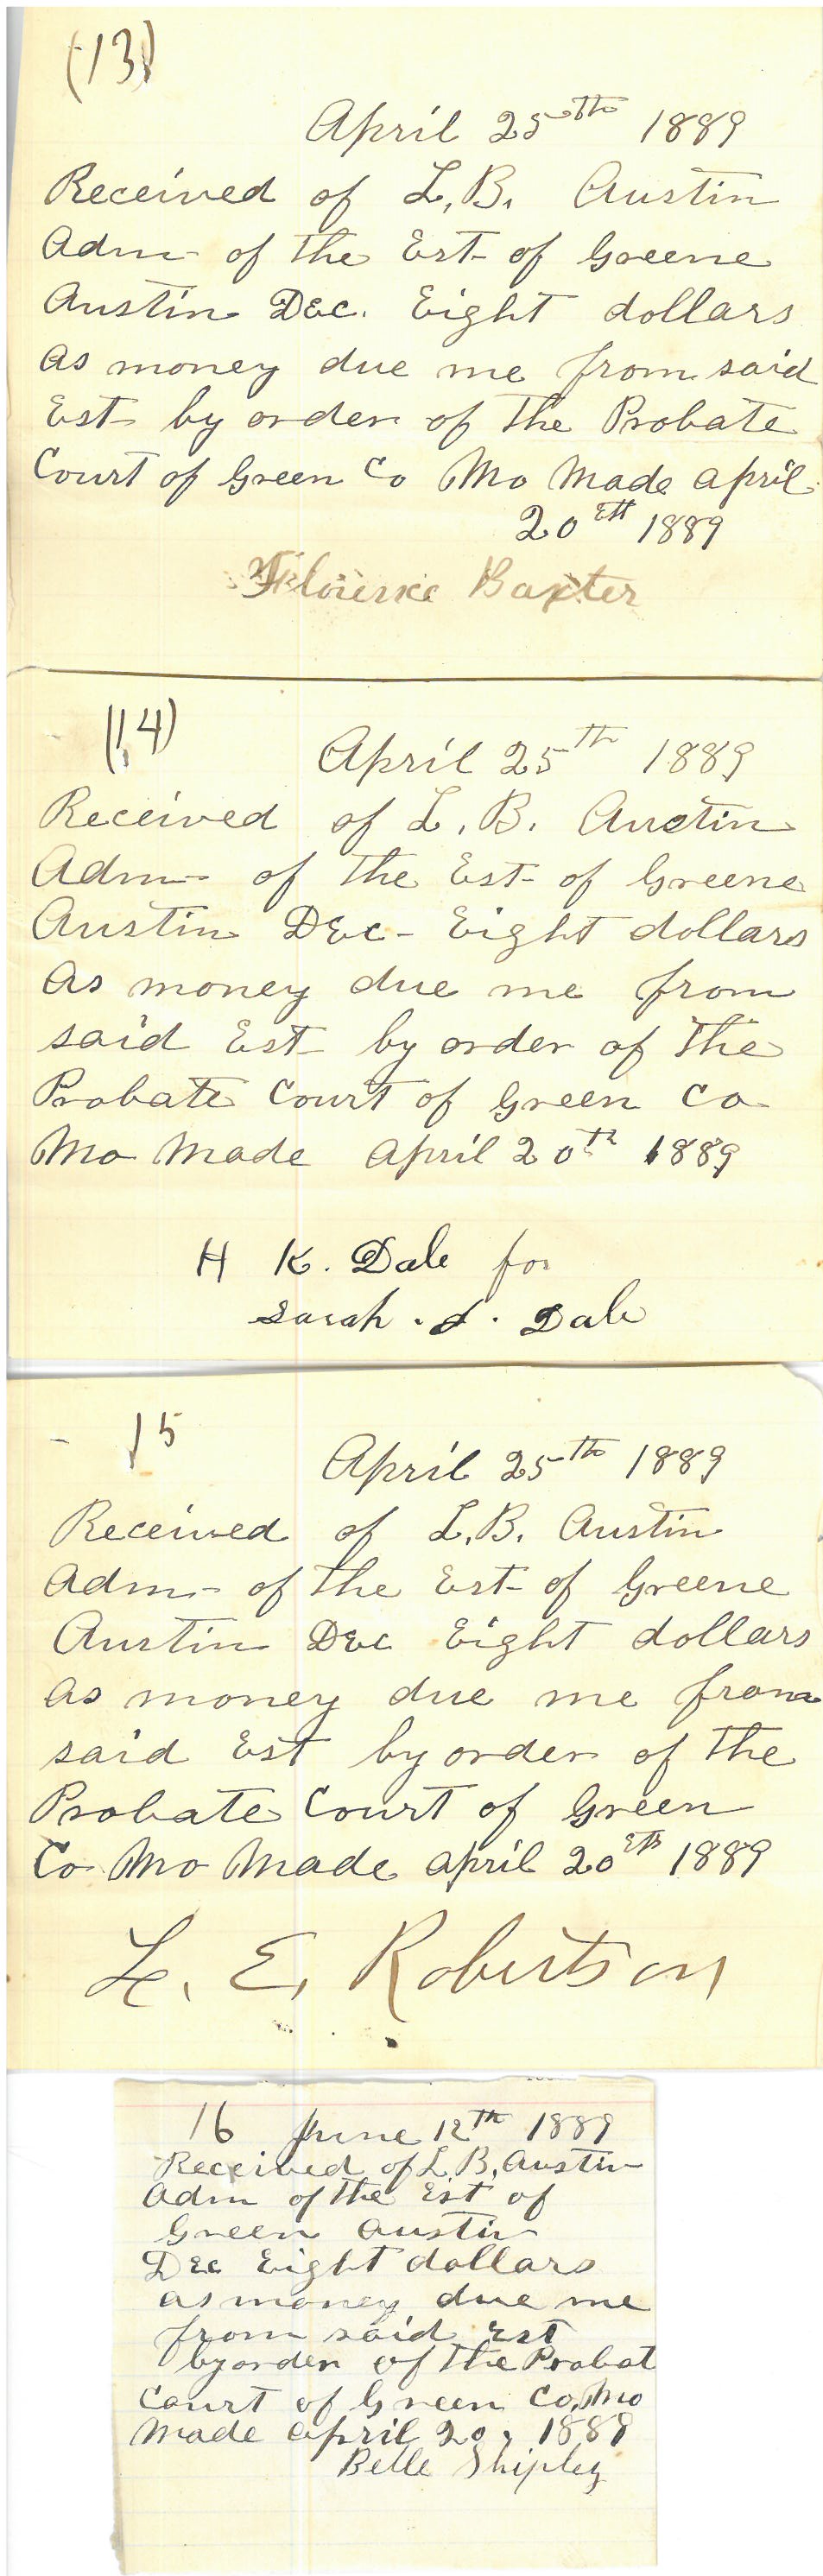 (13)
April 25th 1889
Received of L. B. Austin
Adm of the Est of Greene
Austin Dec. Eight dollars
as money due me from said
Est by order of the Probate
Court of Green Co Mo Made April
20th 1889
Baxter
(14)
April 25th 1889
Received of L. B. Austin
Adm of the Est of Greene
Austin Dec - Eight dollars
as money due me from
said Est by order of the
Probate Court of Green Co
Mo Made April 20th 1889
H K. Dale for
Sarah . J . Dale
15
April 25th 1889
Received of L. B. Austin
Adm of the Est of Greene
Austin Dec Eight dollars
as money due me from
said Est by order of the
Probate Court of Green
Co Mo Made April 20th 1889
L. E. Robertson
16 June 12th 1889
Received of L. B. Austin
Adm of the Est of
Green Austin
Dec Eight dollars
as money due me
from said Est
by order of the Probat
Court of Green Co, Mo
Made April 20, 1889
Belle Shipley